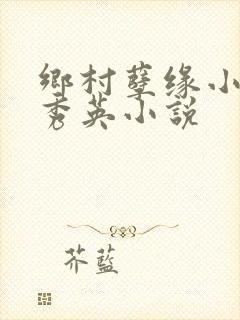 鄉村孽缘小
秀英小說
芥蓝